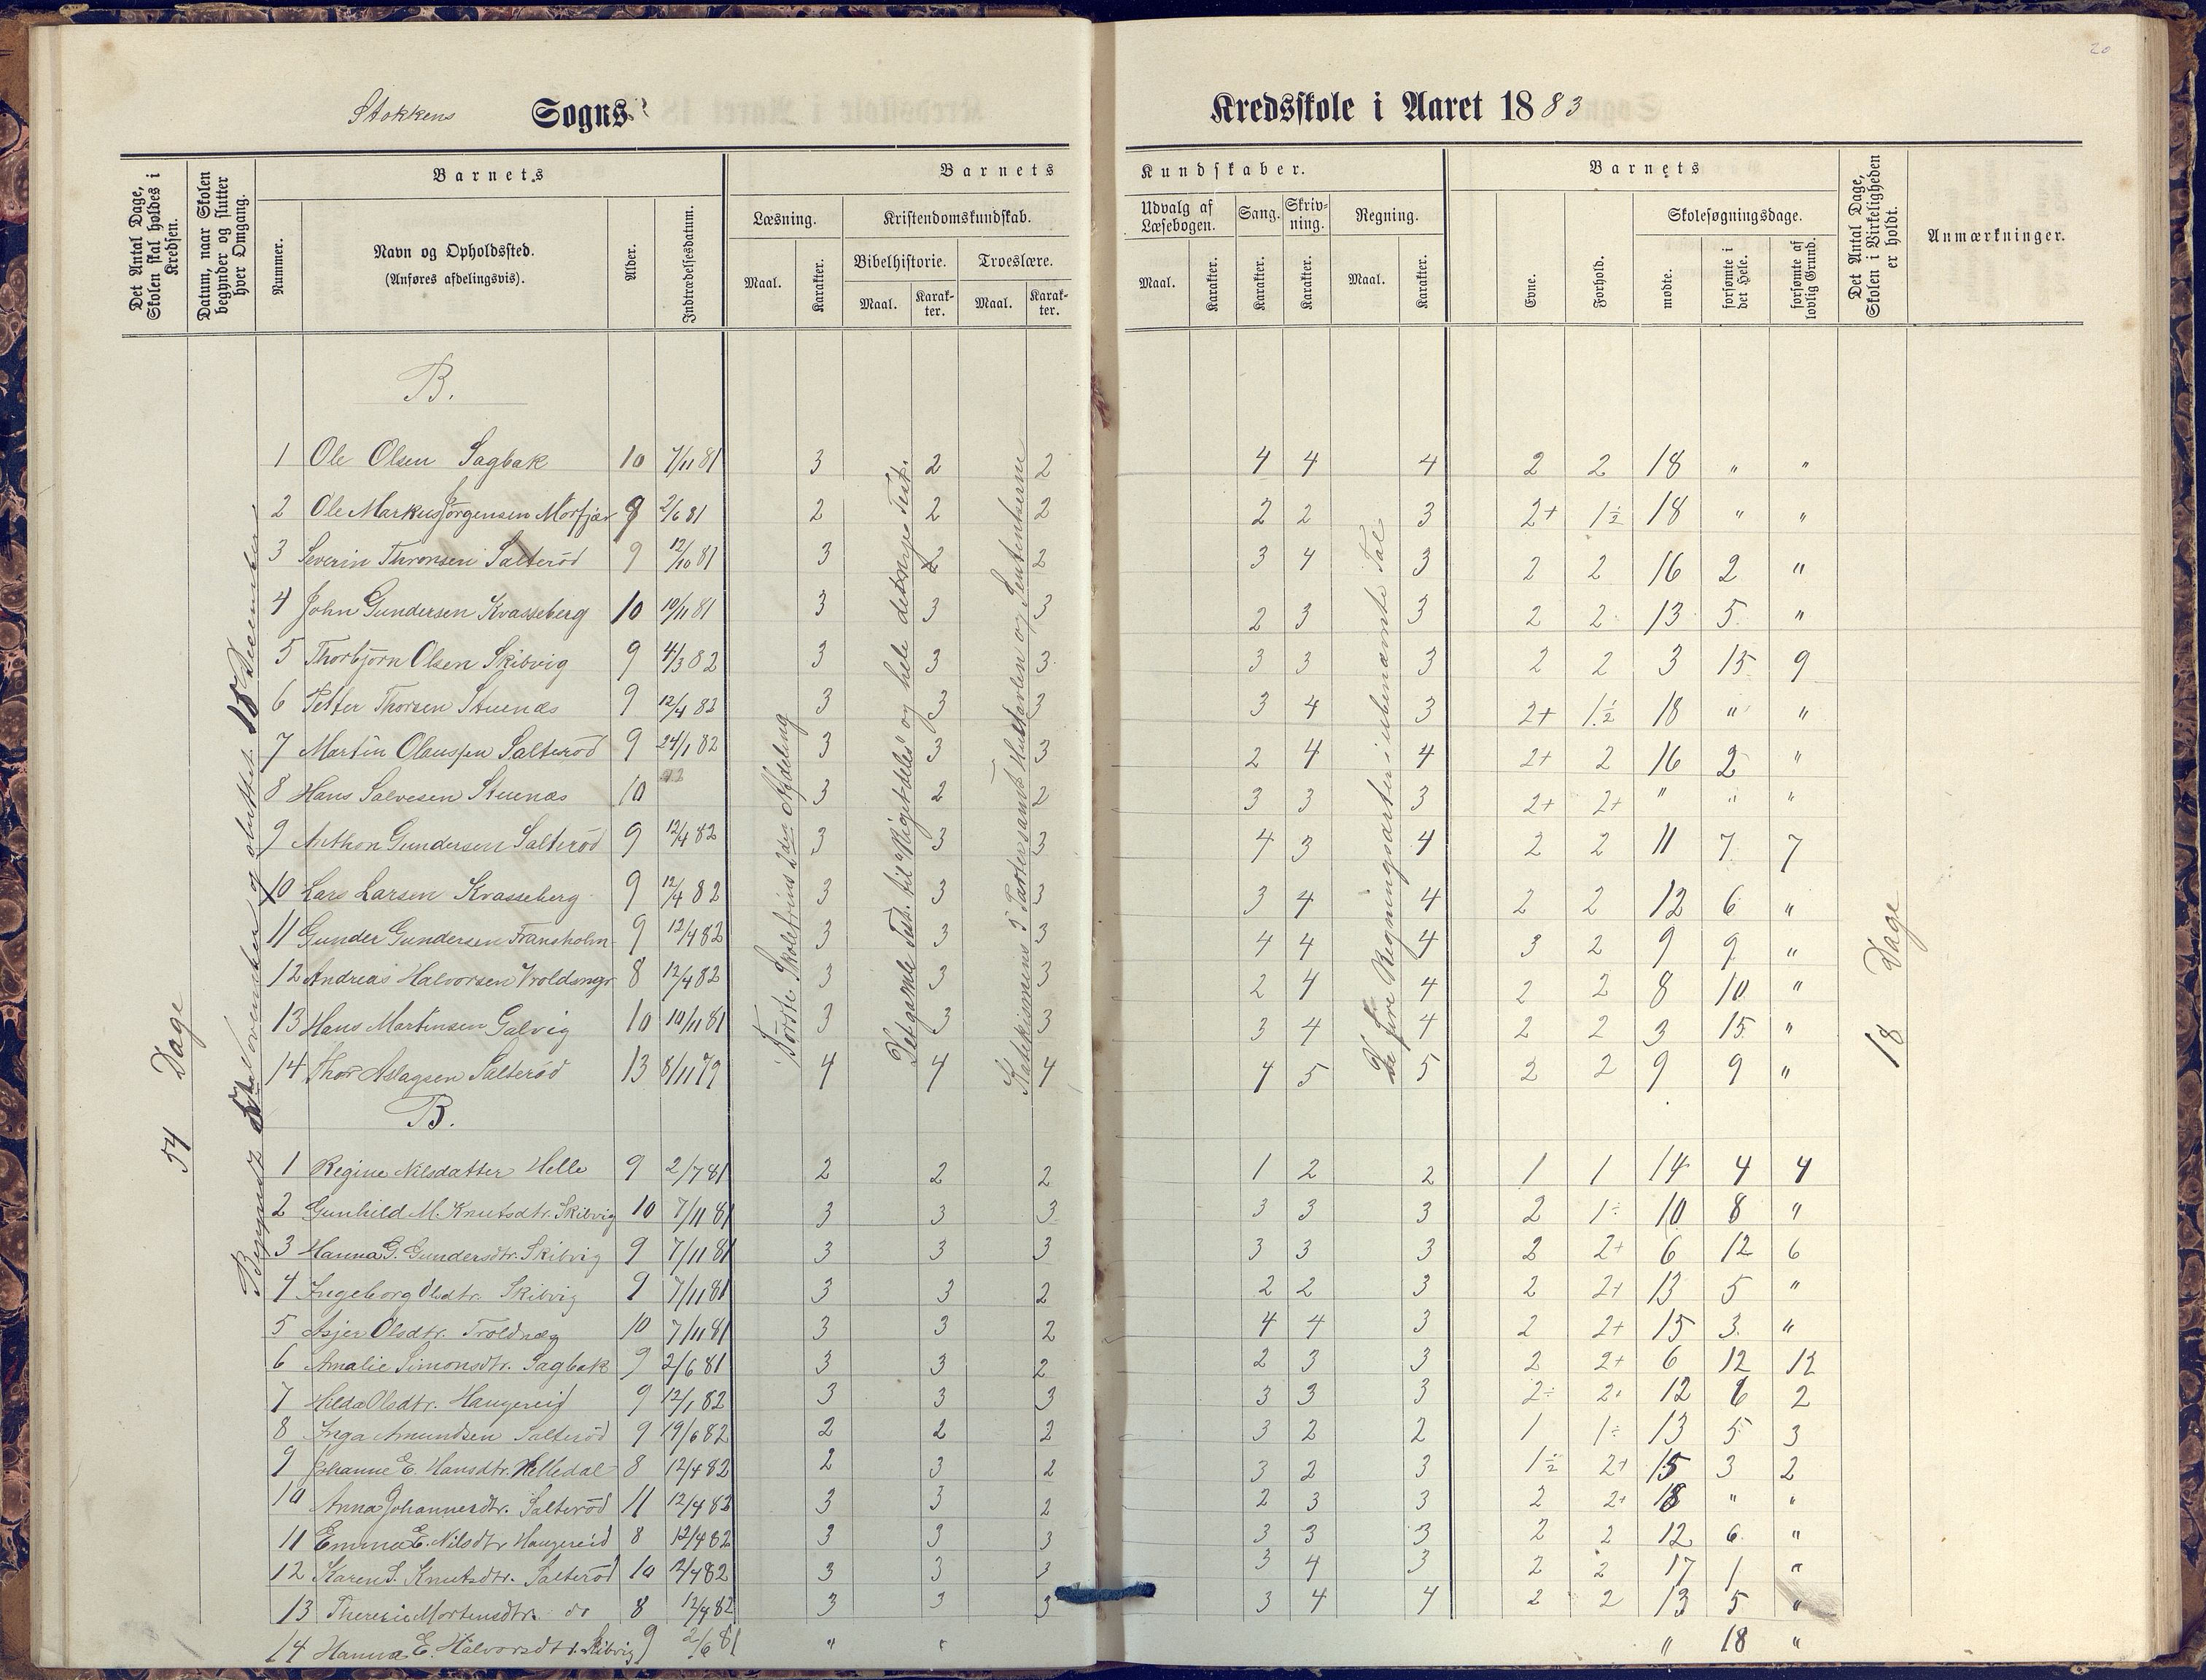 20
Stokkens Sogns Kredsskole i Aaret 1883
Det Antal Dage, Skolen skal holdes i Kredsen.
Datum, naar Skolen begynder og slutter hver Omgang.
Barnets
Nummer.
Navn og Opholdssted.
(Anføres afdelingsvis).
Alder.
Indtrædelsesdatum.
Barnets Kundskaber.
Læsning.
Maal. Karakter.
Kristendomskundskab.
Bibelhistorie. Troeslære.
Maal. Karakter. Maal. Karakter.
Udvalg af Læsebogen. Sang. Skrivning. Regning.
Maal. Karakter. Karakter. Karakter. Maal. Karakter.
Barnets
Evne. Forhold.
Skolesøgningsdage.
mødte. forsømte i det Hele. forsømte af lovlig Grund.
Det Antal Dage, Skolen i Virkeligheden er holdt.
Anmærkninger.
54 Dage
November og sluttet 18 December
Første Skoletrins 2den Afdeling
Det gamle Test. til "Rigets deles" og hele det nye Test.
Katekismens 5 Parter samt Hustavlen og Sententserne
De fire Regningsarter i ubenævnte Tal
18 Dage
B.
1 Ole Olsen Sagbak 10 7/11 81 3 2 2 4 4 4 2 2 18 " "
2 Ole Markus Jørgensen Morfjær 9 2/6 81 2 2 2 2 2 3 2+ 1½ 18 " "
3 Severin Thronsen Salterød 9 12/10 81 3 2 2 3 4 3 2 2 16 2 "
4 John Gundersen Kvasseberg 10 10/11 81 3 3 3 2 3 3 2 2 13 5 "
5 Thorbjørn Olsen Skibvig 9 4/3 82 3 3 3 3 3 3 2 2 3 15 9
6 Petter Thorsen Stuenæs 9 12/4 82 3 3 3 3 4 3 2+ 1½ 18 " "
7 Martin Olaussen Salterød 9 24/1 82 3 3 3 2 4 4 2+ 2 16 2 "
8 Hans Salvesen Stuenæs 10 3 2 2 3 3 3 2+ 2+ " " "
9 Anthon Gundersen Salterød 9 12/4 82 3 3 3 4 3 4 2 2 11 7 7
10 Lars Larsen Kvasseberg 9 12/4 82 3 3 3 3 4 4 2 2 12 6 "
11 Gunder Gundersen Fransholm 9 12/4 82 3 3 3 4 4 4 3 2 9 9 "
12 Andreas Halvorsen 8 12/4 82 3 3 3 2 4 4 2 2 8 10 "
13 Hans Martinsen Galvig 10 10/11 81 3 3 3 3 4 4 2 2 3 15 "
14 Thor Aslagsen Salterød 13 8/11 79 4 4 4 4 5 5 2 2 9 9 "
B.
1 Regine Nilsdatter Helle 9 2/7 81 2 2 2 1 2 2 1 1 14 4 4
2 Gunhild M. Knutsdtr. Skibvig 10 7/11 81 3 3 3 3 3 3 2 1÷ 10 8 "
3 Hanna G. Gundersdtr. Skibvig 9 7/11 81 3 3 3 3 3 3 2 2+ 6 12 6
4 Ingeborg Olsdtr. Skibvig 9 7/11 81 3 3 2 2 2 3 2 2+ 13 5 "
5 Asjer Olsdtr. Troldnæs 10 7/11 81 3 3 2 4 4 3 2 2+ 15 3 "
6 Amalie Simonsdtr. Sagbak 9 2/6 81 3 3 2 2 3 3 2 2+ 6 12 12
7 Hilda Olsdtr. Haugereid 9 12/1 82 3 3 3 3 3 3 2÷ 2+ 12 6 2
8 Inga Amundsen Salterød 9 19/6 82 2 2 2 3 2 2 1 1÷ 13 5 3
9 Johanne E. Hansdtr. Helledal 8 12/4 82 2 3 2 3 2 3 1½ 2+ 15 3 2
10 Anna Johannesdtr. Salterød 11 12/4 82 3 3 2 2 3 3 2 2+ 18 " "
11 Emma E. Nilsdtr Haugereid 8 12/4 82 3 3 3 3 3 3 2 2 12 6 "
12 Karen S. Knutsdtr. Salterød 10 12/4 82 3 3 3 3 4 3 2 2 17 1 "
13 Theresie Mortensdtr. do 8 12/4 82 3 3 3 3 4 4 2 2 13 5 "
14 Hanna E. Halvorsdtr. Skibvig 9 2/6 81 " " " 18 "